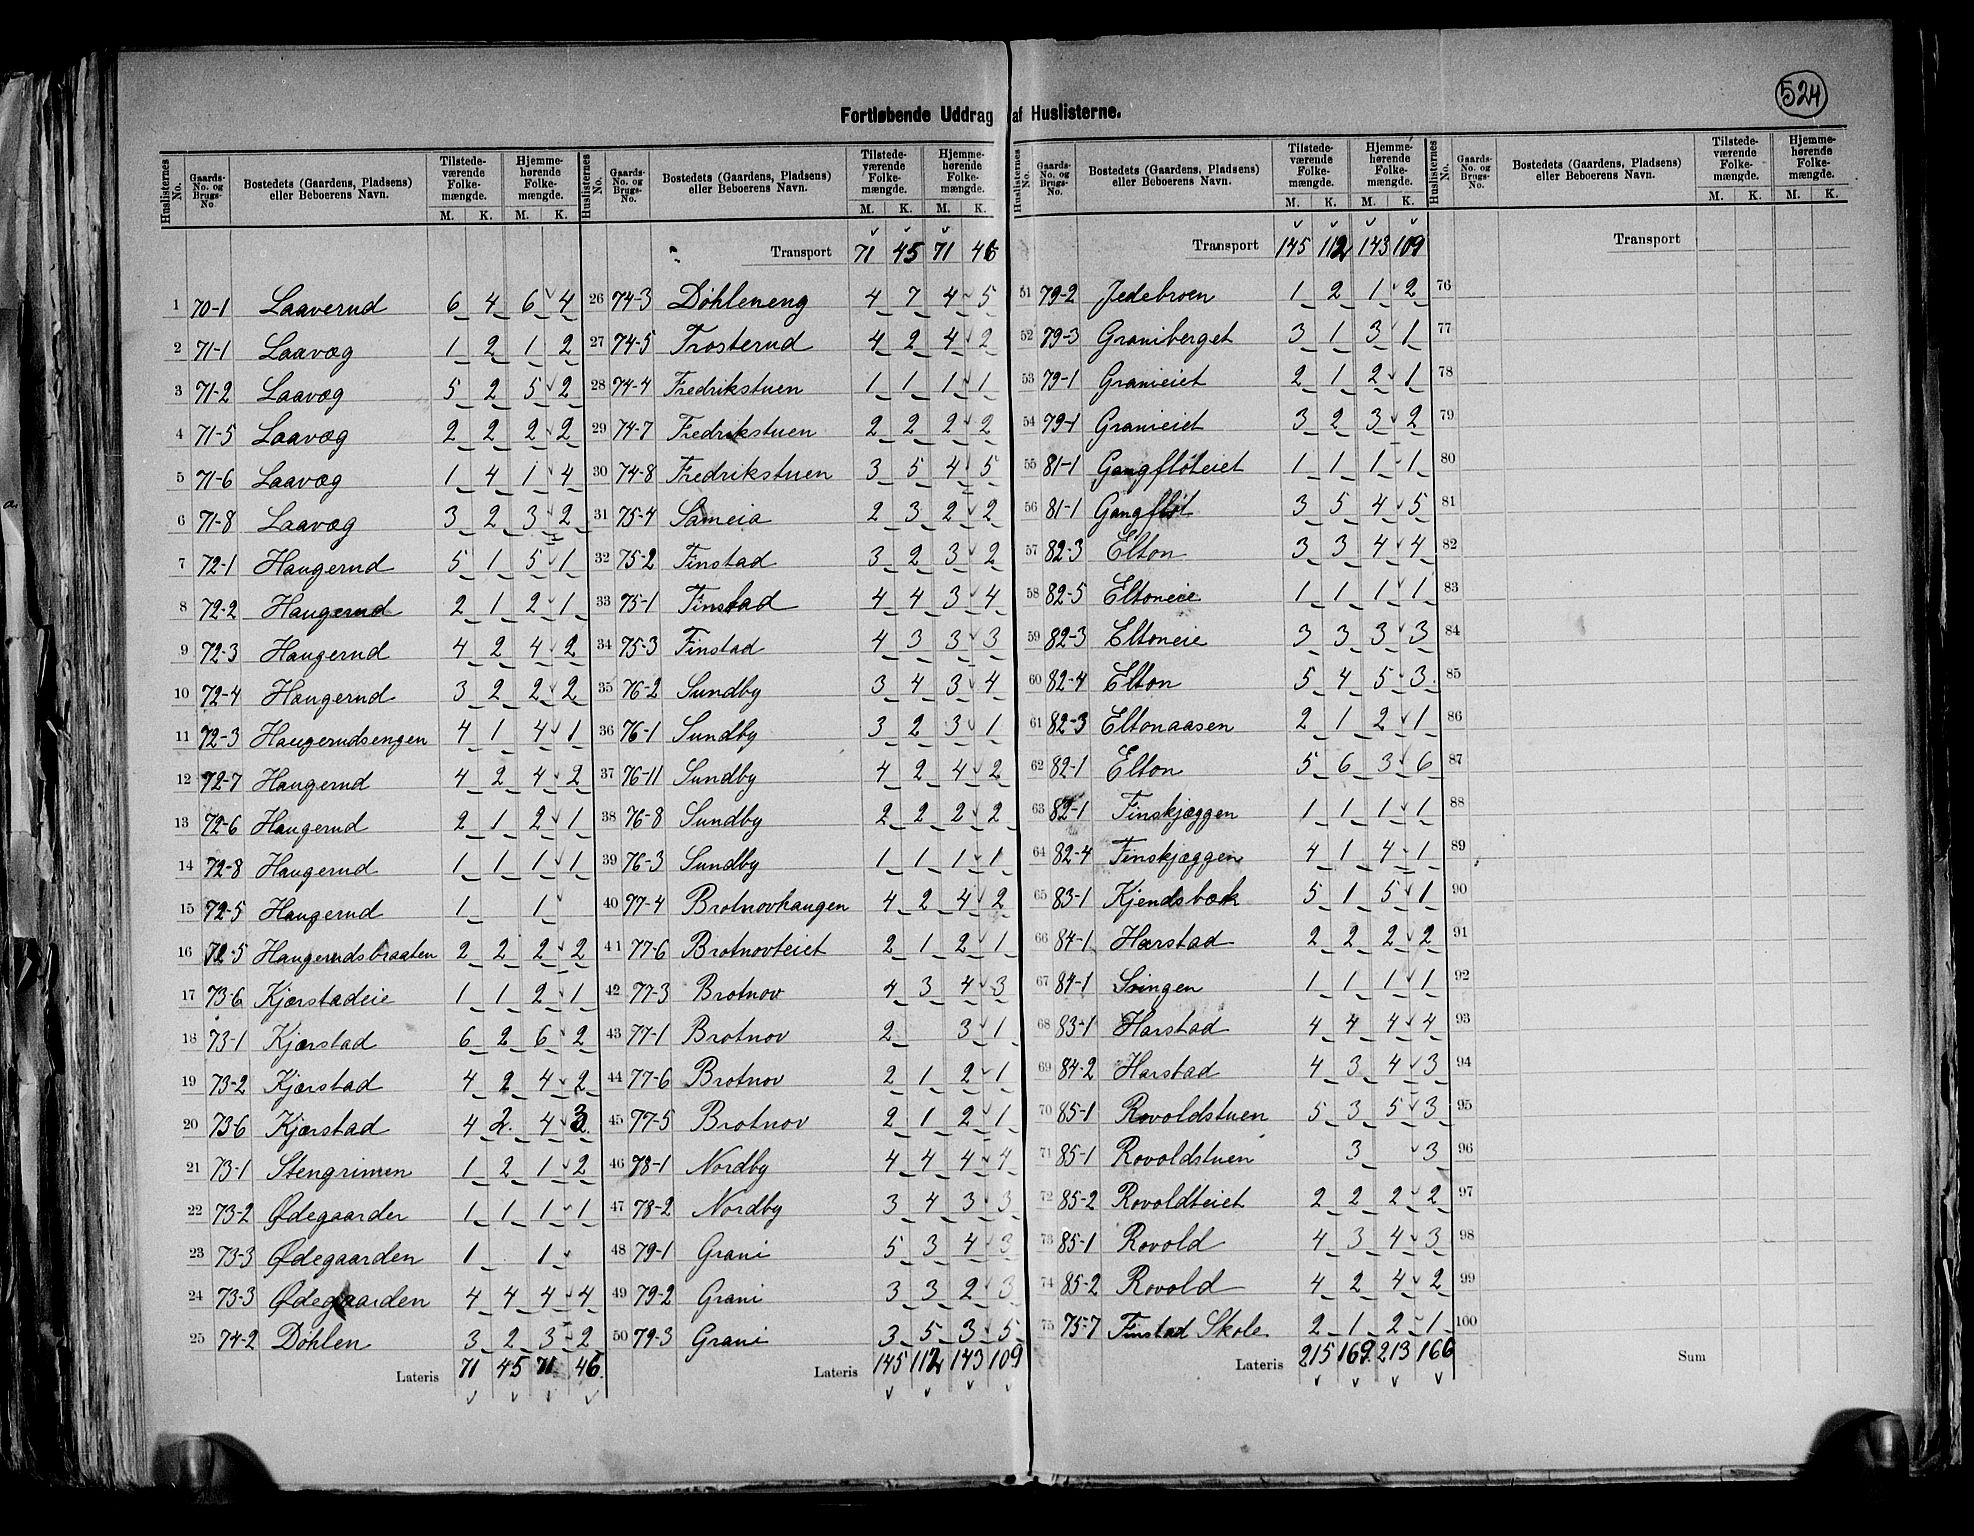 524
Fortløbende Uddrag af Huslisterne.
Huslisternes No. Gaards-No. og Brugs-No. Bostedets (Gaardens, Pladsens) eller Beboerens Navn. Tilstedeværende Folkemængde. M. K. Hjemmehørende Folkemængde. M. K.
1 70-1 Laaverud 6 4 6 4
2 71-1 Laavæg 1 2 1 2
3 71-2 Laavæg 5 2 5 2
4 71-5 Laavæg 2 2 2 2
5 71-6 Laavæg 1 4 1 4
6 71-8 Laavæg 3 2 3 2
7 72-1 Haugerud 5 1 5 1
8 72-2 Haugerud 2 1 2 1
9 72-3 Haugerud 4 2 4 2
10 72-4 Haugerud 3 2 2 2
11 72-3 Haugerudsengen 4 1 4 1
12 72-7 Haugerud 4 2 4 2
13 72-6 Haugerud 2 1 2 1
14 72-8 Haugerud 1 1 1 1
15 72-5 Haugerud 1 1
16 72-5 Haugerudsbraaten 2 2 2 2
17 73-6 Kjærstadeie 1 1 2 1
18 73-1 Kjærstad 6 2 6 2
19 73-2 Kjærstad 4 2 4 2
20 73-6 Kjærstad 4 2 4 3
21 73-1 Stengrimen 1 2 1 2
22 73-2 Ødegaarden 1 1 1 1
23 73-3 Ødegaarden 1 1
24 73-3 Ødegaarden 4 4 4 4
25 74-2 Døhlen 3 2 3 2
Lateris 71 45 71 46
Huslisternes No. Gaards-No. og Brugs-No. Bostedets (Gaardens, Pladsens) eller Beboerens Navn. Tilstedeværende Folkemængde. M. K. Hjemmehørende Folkemængde. M. K.
Transport 71 45 71 46
26 74-3 Døhleneng 4 7 4 5
27 74-5 Trosterud 4 2 4 2
28 74-4 Fredrikstuen 1 1 1 1
29 74-7 Fredrikstuen 2 2 2 2
30 74-8 Fredrikstuen 3 5 4 5
31 75-4 Sameia 2 3 2 2
32 75-2 Finstad 3 2 3 2
33 75-1 Finstad 4 4 3 4
34 75-3 Finstad 4 3 3 3
35 76-2 Sundby 3 4 3 4
36 76-1 Sundby 3 2 3 1
37 76-11 Sundby 4 2 4 2
38 76-8 Sundby 2 2 2 2
39 76-3 Sundby 1 1 1 1
40 77-4 Brotnovhaugen 4 2 4 2
41 77-6 Brotnovteiet 2 1 2 1
42 77-3 Brotnov 4 3 4 3
43 77-1 Brotnov 2 3 1
44 77-6 Brotnov 2 1 2 1
45 77-5 Brotnov 2 1 2 1
46 78-1 Nordby 4 4 4 4
47 78-2 Nordby 3 4 3 3
48 79-1 Grani 5 3 4 3
49 79-2 Grani 3 3 2 3
50 79-3 Grani 3 5 3 5
Lateris 145 112 143 109
Huslisternes No. Gaards-No. og Brugs-No. Bostedets (Gaardens, Pladsens) eller Beboerens Navn. Tilstedeværende Folkemængde. M. K. Hjemmehørende Folkemængde. M. K.
Transport 145 112 143 109
51 79-2 Jedebroen 1 2 1 2
52 79-3 Graniberget 3 1 3 1
53 79-1 Granieiet 2 1 2 1
54 79-1 Granieiet 3 2 3 2
55 81-1 Gangfløteiet 1 1 1 1
56 81-1 Gangfløt 3 5 4 5
57 82-3 Elton 3 3 4 4
58 82-5 Eltoneie 1 1 1 1
59 82-3 Eltoneie 3 3 3 3
60 82-4 Elton 5 4 5 3
61 82-3 Eltonaasen 2 1 2 1
62 82-1 Elton 5 6 3 6
63 82-1 Finskjæggen 1 1 1 1
64 82-4 Finskjæggen 4 1 4 1
65 83-1 Kjendsbæk 5 1 5 1
66 84-1 Harstad 2 2 2 2
67 84-1 Svingen 1 1 1 1
68 83-1 Harstad 4 4 4 4
69 84-2 Harstad 4 3 4 3
70 85-1 Rovoldstuen 5 3 5 3
71 85-1 Rovoldstuen 3 3
72 85-2 Rovoldteiet 2 2 2 2
73 85-1 Rovold 4 3 4 3
74 85-2 Rovold 4 2 4 2
75 75-7 Finstad Skole 2 1 2 1
Lateris 215 169 213 166
Huslisternes No. Gaards-No. og Brugs-No. Bostedets (Gaardens, Pladsens) eller Beboerens Navn. Tilstedeværende Folkemængde. M. K. Hjemmehørende Folkemængde. M. K.
Transport
76
77
78
79
80
81
82
83
84
85
86
87
88
89
90
91
92
93
94
95
96
97
98
99
100
Sum